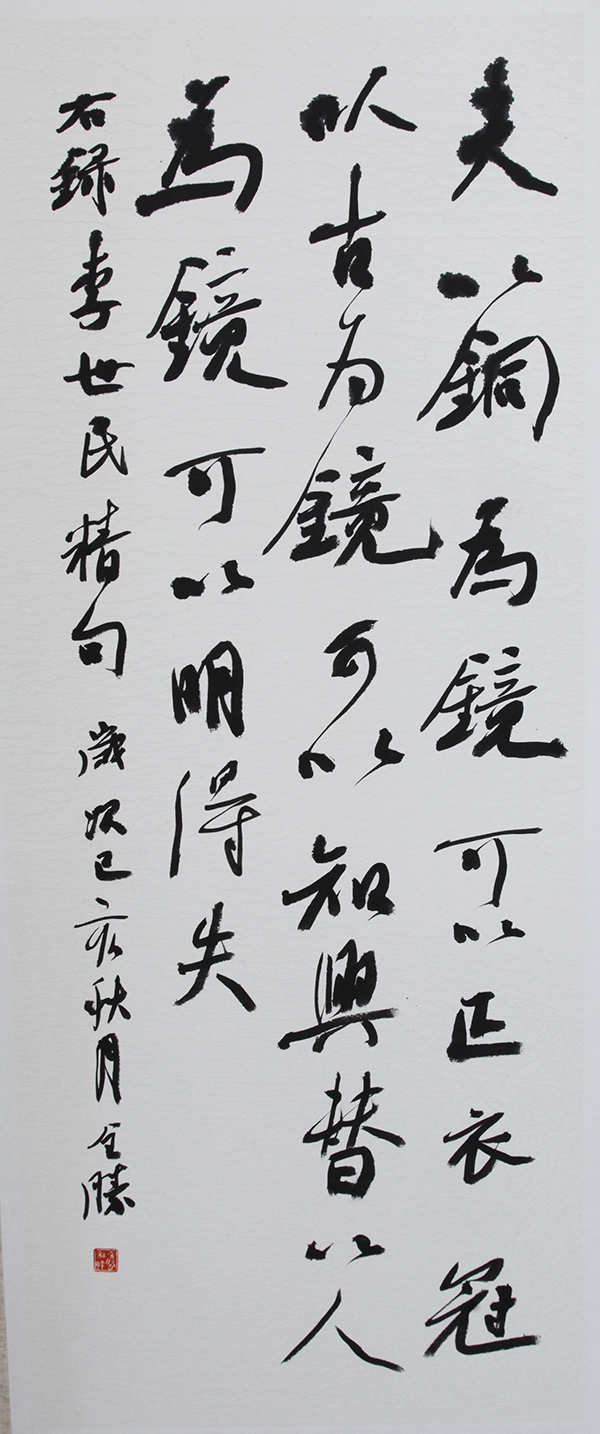 夫以銅為鏡可以正衣冠
以古为鏡可以知興替以人
為鏡可以明得失
右録李世民精句 歲次己亥秋月 全勝